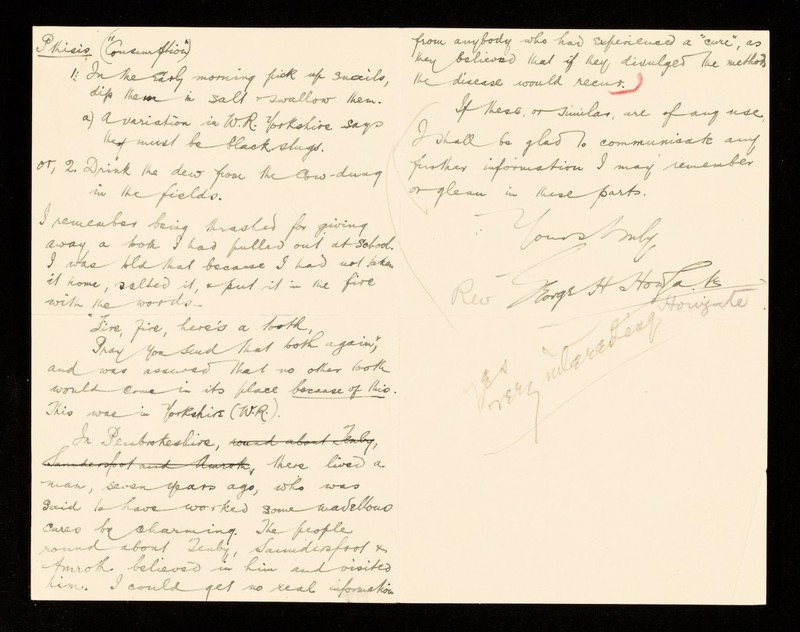 Phisis ("Consumption")
1: In the early morning pick up snails,
dip them in salt & swallow them.
a) A variation in W.R. Yorkshire says
they must be black slugs.
or, 2. Drink the dew from the cow-dung
in the fields.
I remember being thrashed for giving
away a tooth I had pulled out at school.
I was told that because I had not taken
it home, salted it, & put it in the fire
with the words—
"Fire, fire, here's a tooth,
Pray you send that tooth again",
and was assured that no other tooth
would come in its place because of this.
This was in Yorkshire (W.R.).
In Pembrokeshire, round about Tenby,
Saundersfoot and Amroth, there lived a
man, seven years ago, who was
said to have worked some marvellous
cures by charming. The people
round about Tenby, Saundersfoot &
Amroth believed in him and visited
him. I could get no real information
from anybody who had experienced a "cure", as
they believed that if they divulged the methods
the disease would recur.
If these, or similar, are of any use,
I shall be glad to communicate any
further information I may remember
or glean in these parts.
Yours truly,
Rev George H Howgate
Howgate
Yes
very interesting